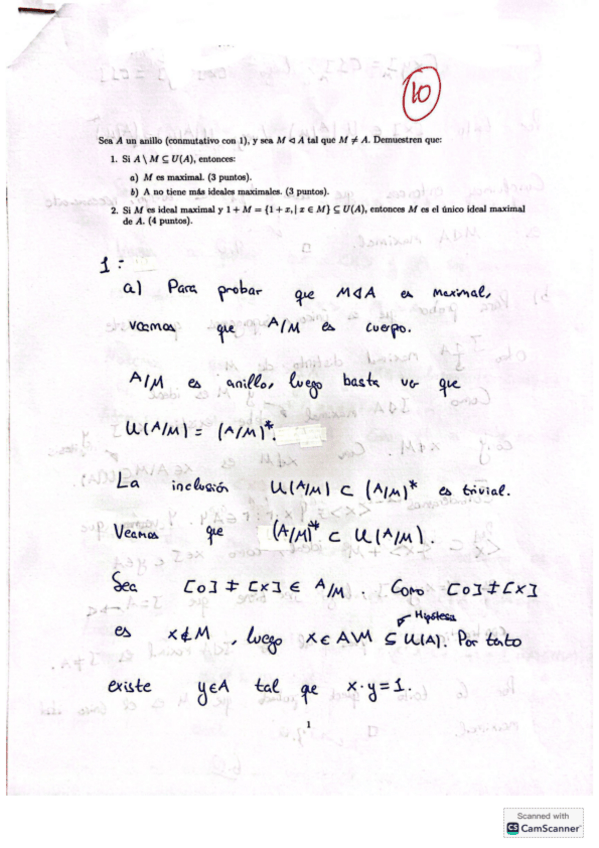 10
Sea A un anillo (conmutativo con 1), y sea M ◁ A tal que M ≠ A. Demuestren que:
1. Si A \ M ⊆ U(A), entonces:
a) M es maximal. (3 puntos).
b) A no tiene más ideales maximales. (3 puntos).
2. Si M es ideal maximal y 1 + M = {1 + x, | x ∈ M} ⊆ U(A), entonces M es el único ideal maximal
de A. (4 puntos).
1:
a) Para probar que M◁A es maximal,
veamos que A/M es cuerpo.
A/M es anillo, luego basta ver que
U(A/M) = (A/M)*.
La inclusión U(A/M) ⊂ (A/M)* es trivial.
Veamos que (A/M)* ⊂ U(A/M).
Sea [0] ≠ [x] ∈ A/M. Como [0] ≠ [x]
Hipótesis
es x∉M, luego x ∈ A\M ⊆ U(A). Por tanto
existe y∈A tal que x·y=1.
1
Scanned with
CS CamScanner